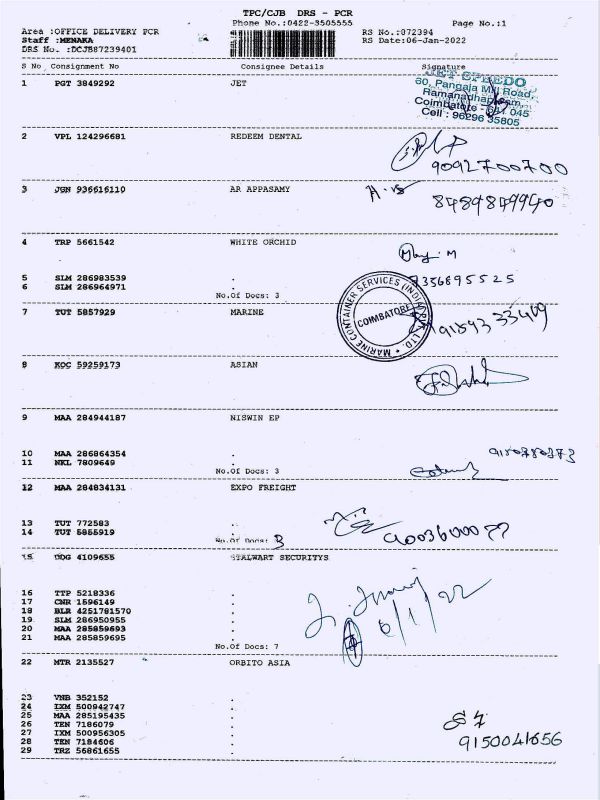 TPC/CJB DRS - PCR
Phone No.:0422-3505555 Page No.:1
Area :OFFICE DELIVERY PCR RS No.:872394
Staff :MENAKA RS Date:06-Jan-2022
DRS No. :DCJB87239401
S No Consignment No Consignee Details Signature
1 PGT 3849292 JET
JET SPEEDO
80, Pangaja Mill Road,
Ramanadhapuram,
Coimbatore - 641 045
Cell : 96296 35805
2 VPL 124296681 REDEEM DENTAL
9092700700
3 JGN 936616110 AR APPASAMY
8489849940
4 TRP 5661542 WHITE ORCHID
M
5 SLM 286983539 .
7356895525
6 SLM 286964971 .
No.Of Docs: 3
7 TUT 5857929 MARINE
MARINE CONTAINER SERVICES (INDIA) PVT. LTD.
COIMBATORE
8 KOC 59259173 ASIAN
9 MAA 284944187 NISWIN EP
10 MAA 286864354 .
11 NKL 7809649 .
No.Of Docs: 3
12 MAA 284834131 EXPO FREIGHT
13 TUT 772583 .
14 TUT 5855919 .
No.Of Docs: 3
15 DDG 4109655 STALWART SECURITYS
16 TTP 5218336 .
17 CNR 1596149 .
18 BLR 4251781570 .
19 SLM 286950955 .
20 MAA 285859693 .
21 MAA 285859695 .
6/1/22
No.Of Docs: 7
22 MTR 2135527 ORBITO ASIA
23 VNB 352152 .
24 IXM 500942747 .
25 MAA 285195435 .
26 TEN 7186079 .
27 IXM 500956305 .
28 TEN 7184606 .
29 TRZ 56861655 .
9150041656